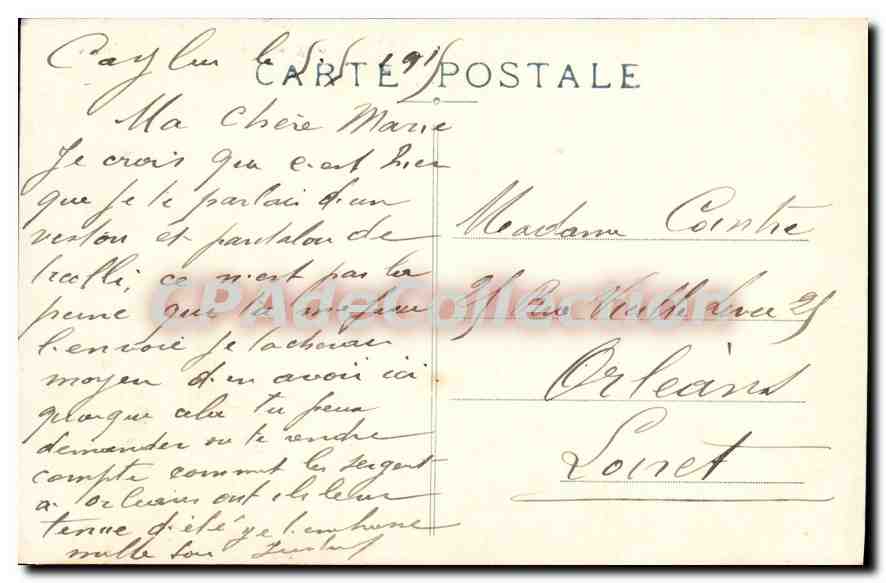 Caylus le 5.5.1915
CARTE POSTALE
Ma Chère Marie
Je crois que c'est hier
que je te parlais d'un
veston et pantalon de
ce n'est pas la
peine que tu me
l'envoie je tacherai
moyen d'en avoir ici
quoique cela tu peux
demander ou te rendre
compte comment les sergent
a Orleans ont ils leur
tenue d'été je t'embrasse
mille fois
Madame Cointre
25 Rue Vieille Levée 25
Orléans
Loiret
CPAdeCollection